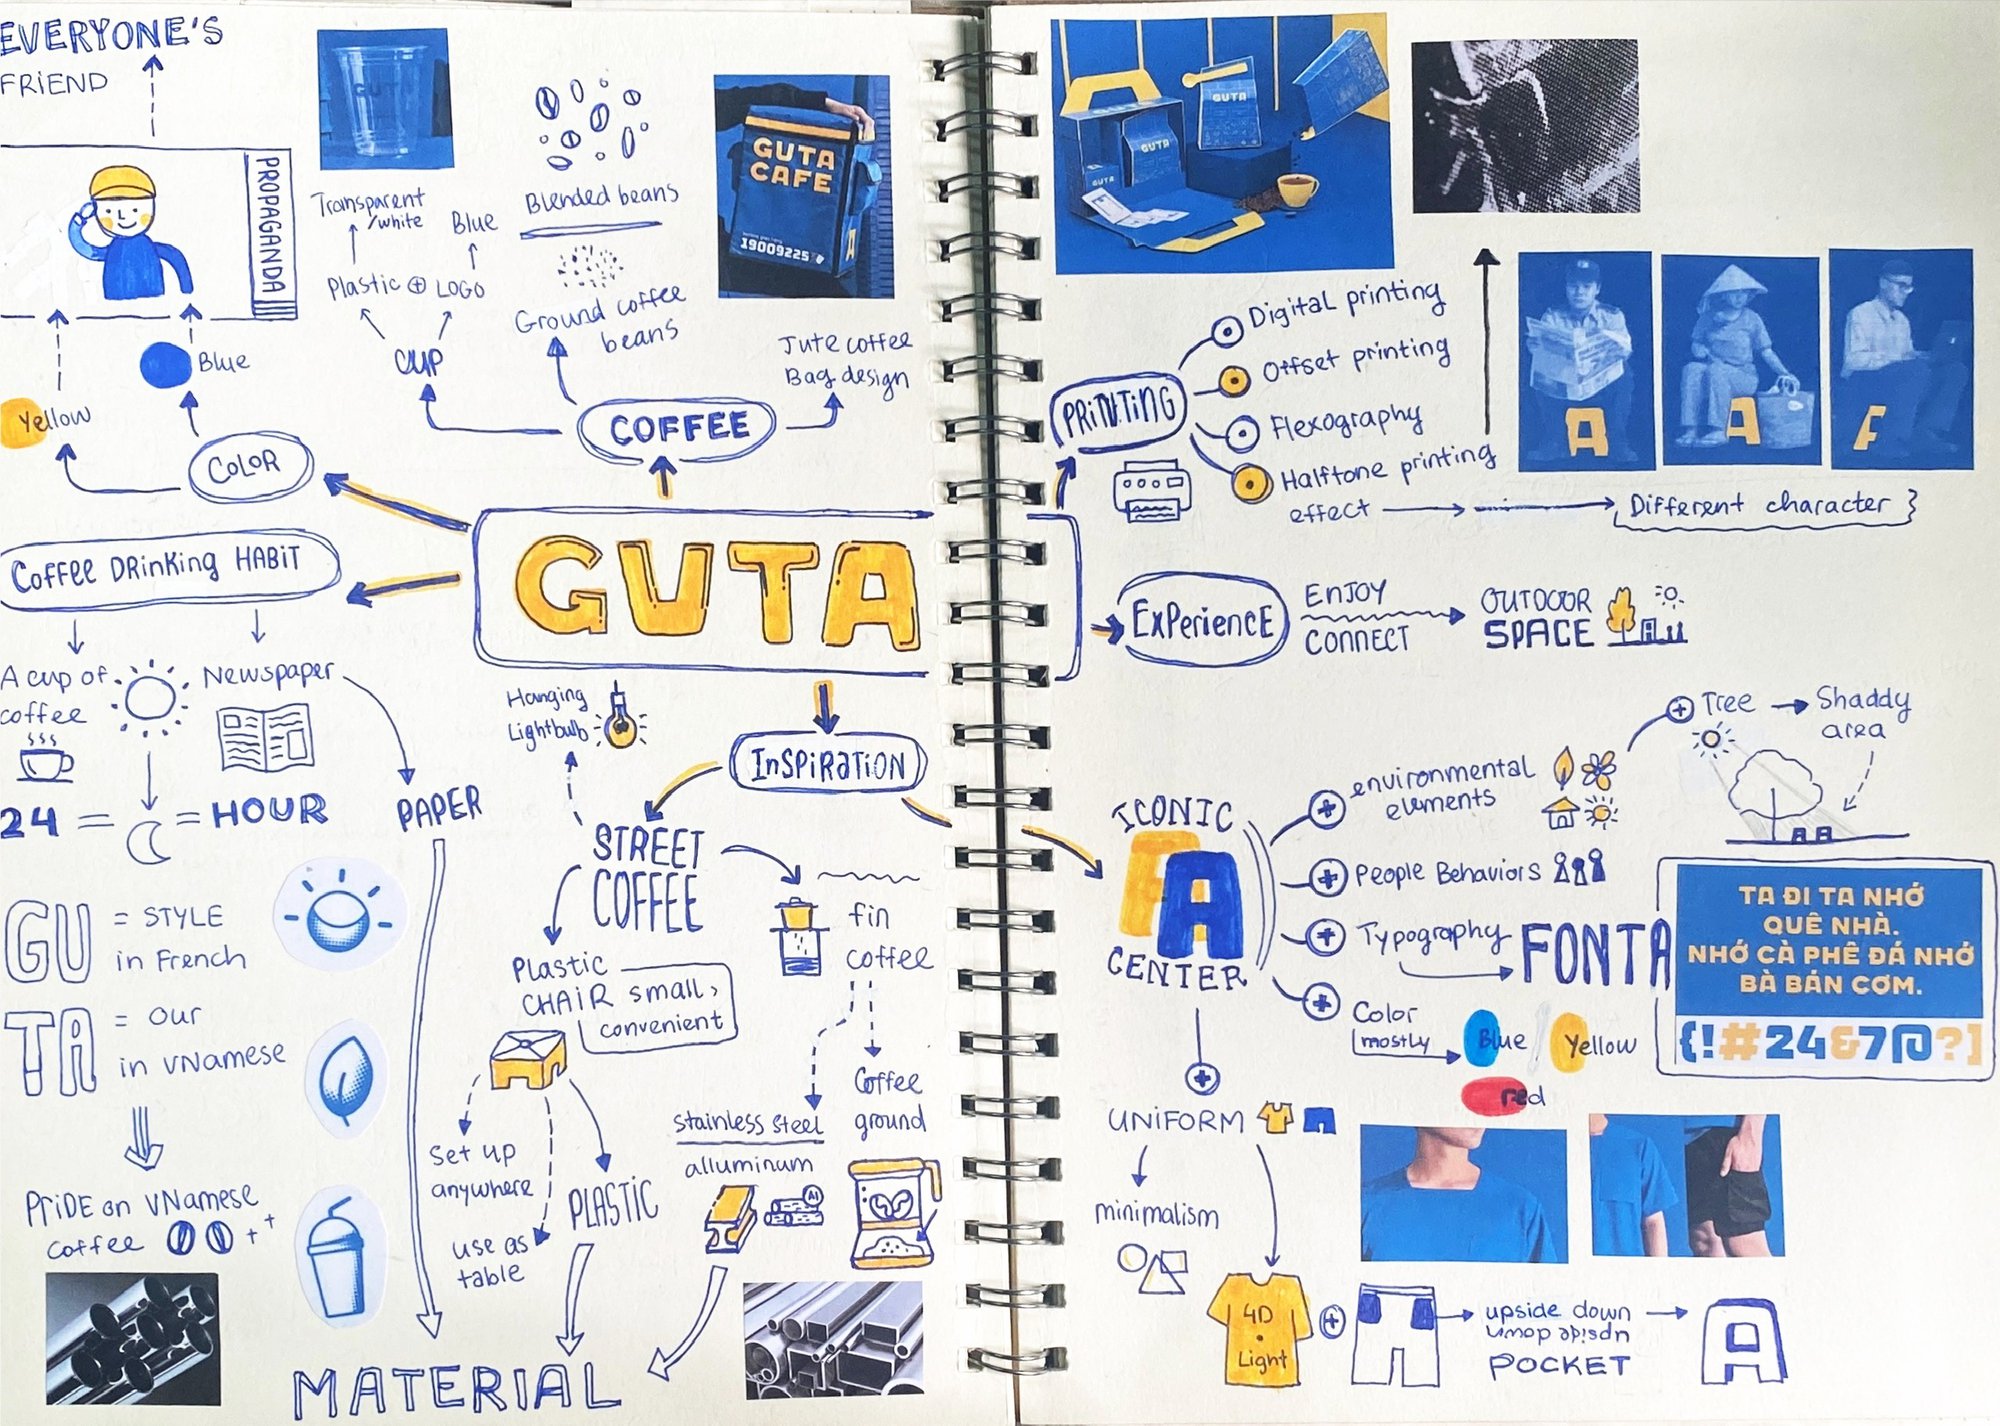 EVERYONE'S
FRIEND
PROPAGANDA
Yellow
Blue
COLOR
GUTA
Transparent
/white
Blue
Plastic ⊕ LOGO
CUP
Blended beans
Ground coffee
beans
GUTA
CAFE
19009225
Jute coffee
Bag design
COFFEE
COFFEE DRINKING HABIT
A cup of
coffee
Newspaper
24 = = HOUR
PAPER
GU = STYLE
in French
TA = our
in vNamese
PRIDE on vNamese
coffee ++
GUTA
Hanging
Lightbulb
INSPIRATION
STREET
COFFEE
fin
coffee
Plastic
CHAIR small,
convenient
Set up
anywhere
use as
table
PLASTIC
stainless steel
alluminum
Al
Coffee
ground
MATERIAL
GUTA
GUTA
GUTA
PRINTING
Digital printing
Offset printing
Flexography
Halftone printing
effect
Different character }
A
A
EXPERIENCE
ENJOY
CONNECT
OUTDOOR
SPACE
ICONIC
A A
CENTER
environmental
elements
Tree
Shaddy
area
People Behaviors
Typography
FONTA
Color
mostly
Blue / Yellow
red
TA ĐI TA NHỚ
QUÊ NHÀ.
NHỚ CÀ PHÊ ĐÁ NHỚ
BÀ BÁN CƠM.
{!#24&7@?]
UNIFORM
minimalism
4D
•
Light
upside down
upside down
POCKET
A